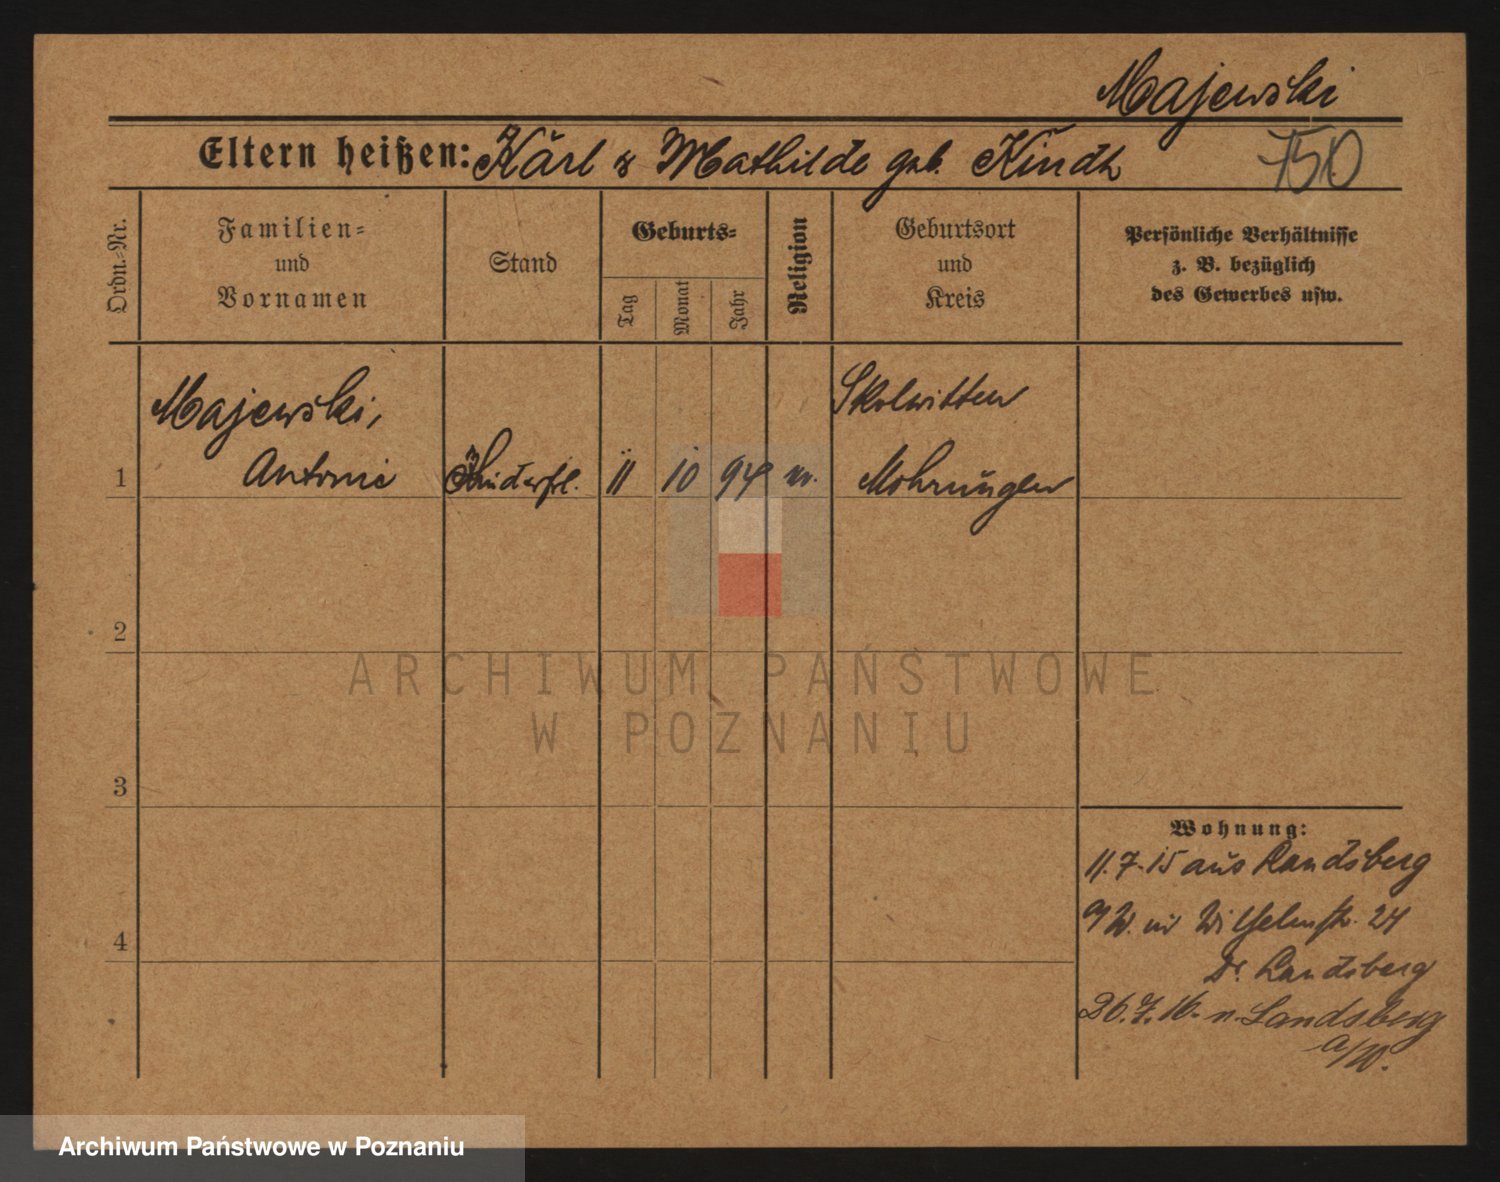 Majewski
Eltern heißen: Karl & Mathilde geb. Kindt
750
Ordn.-Nr.
Familien-
und
Vornamen
Stand
Geburts-
Tag
Monat
Jahr
Religion
Geburtsort
und
Kreis
Persönliche Verhältnisse
z. B. bezüglich
des Gewerbes usw.
Majewski,
Skolwitten
1 Antonie Kinderfrl. 11 10 94 Mohrungen
2
3
4
Wohnung:
11.7.15 aus Landsberg
a/W. Wilhelmstr. 24
Dr. Landsberg
26.7.16. n. Landsberg
a/W.
ARCHIWUM PAŃSTWOWE
W POZNANIU
Archiwum Państwowe w Poznaniu